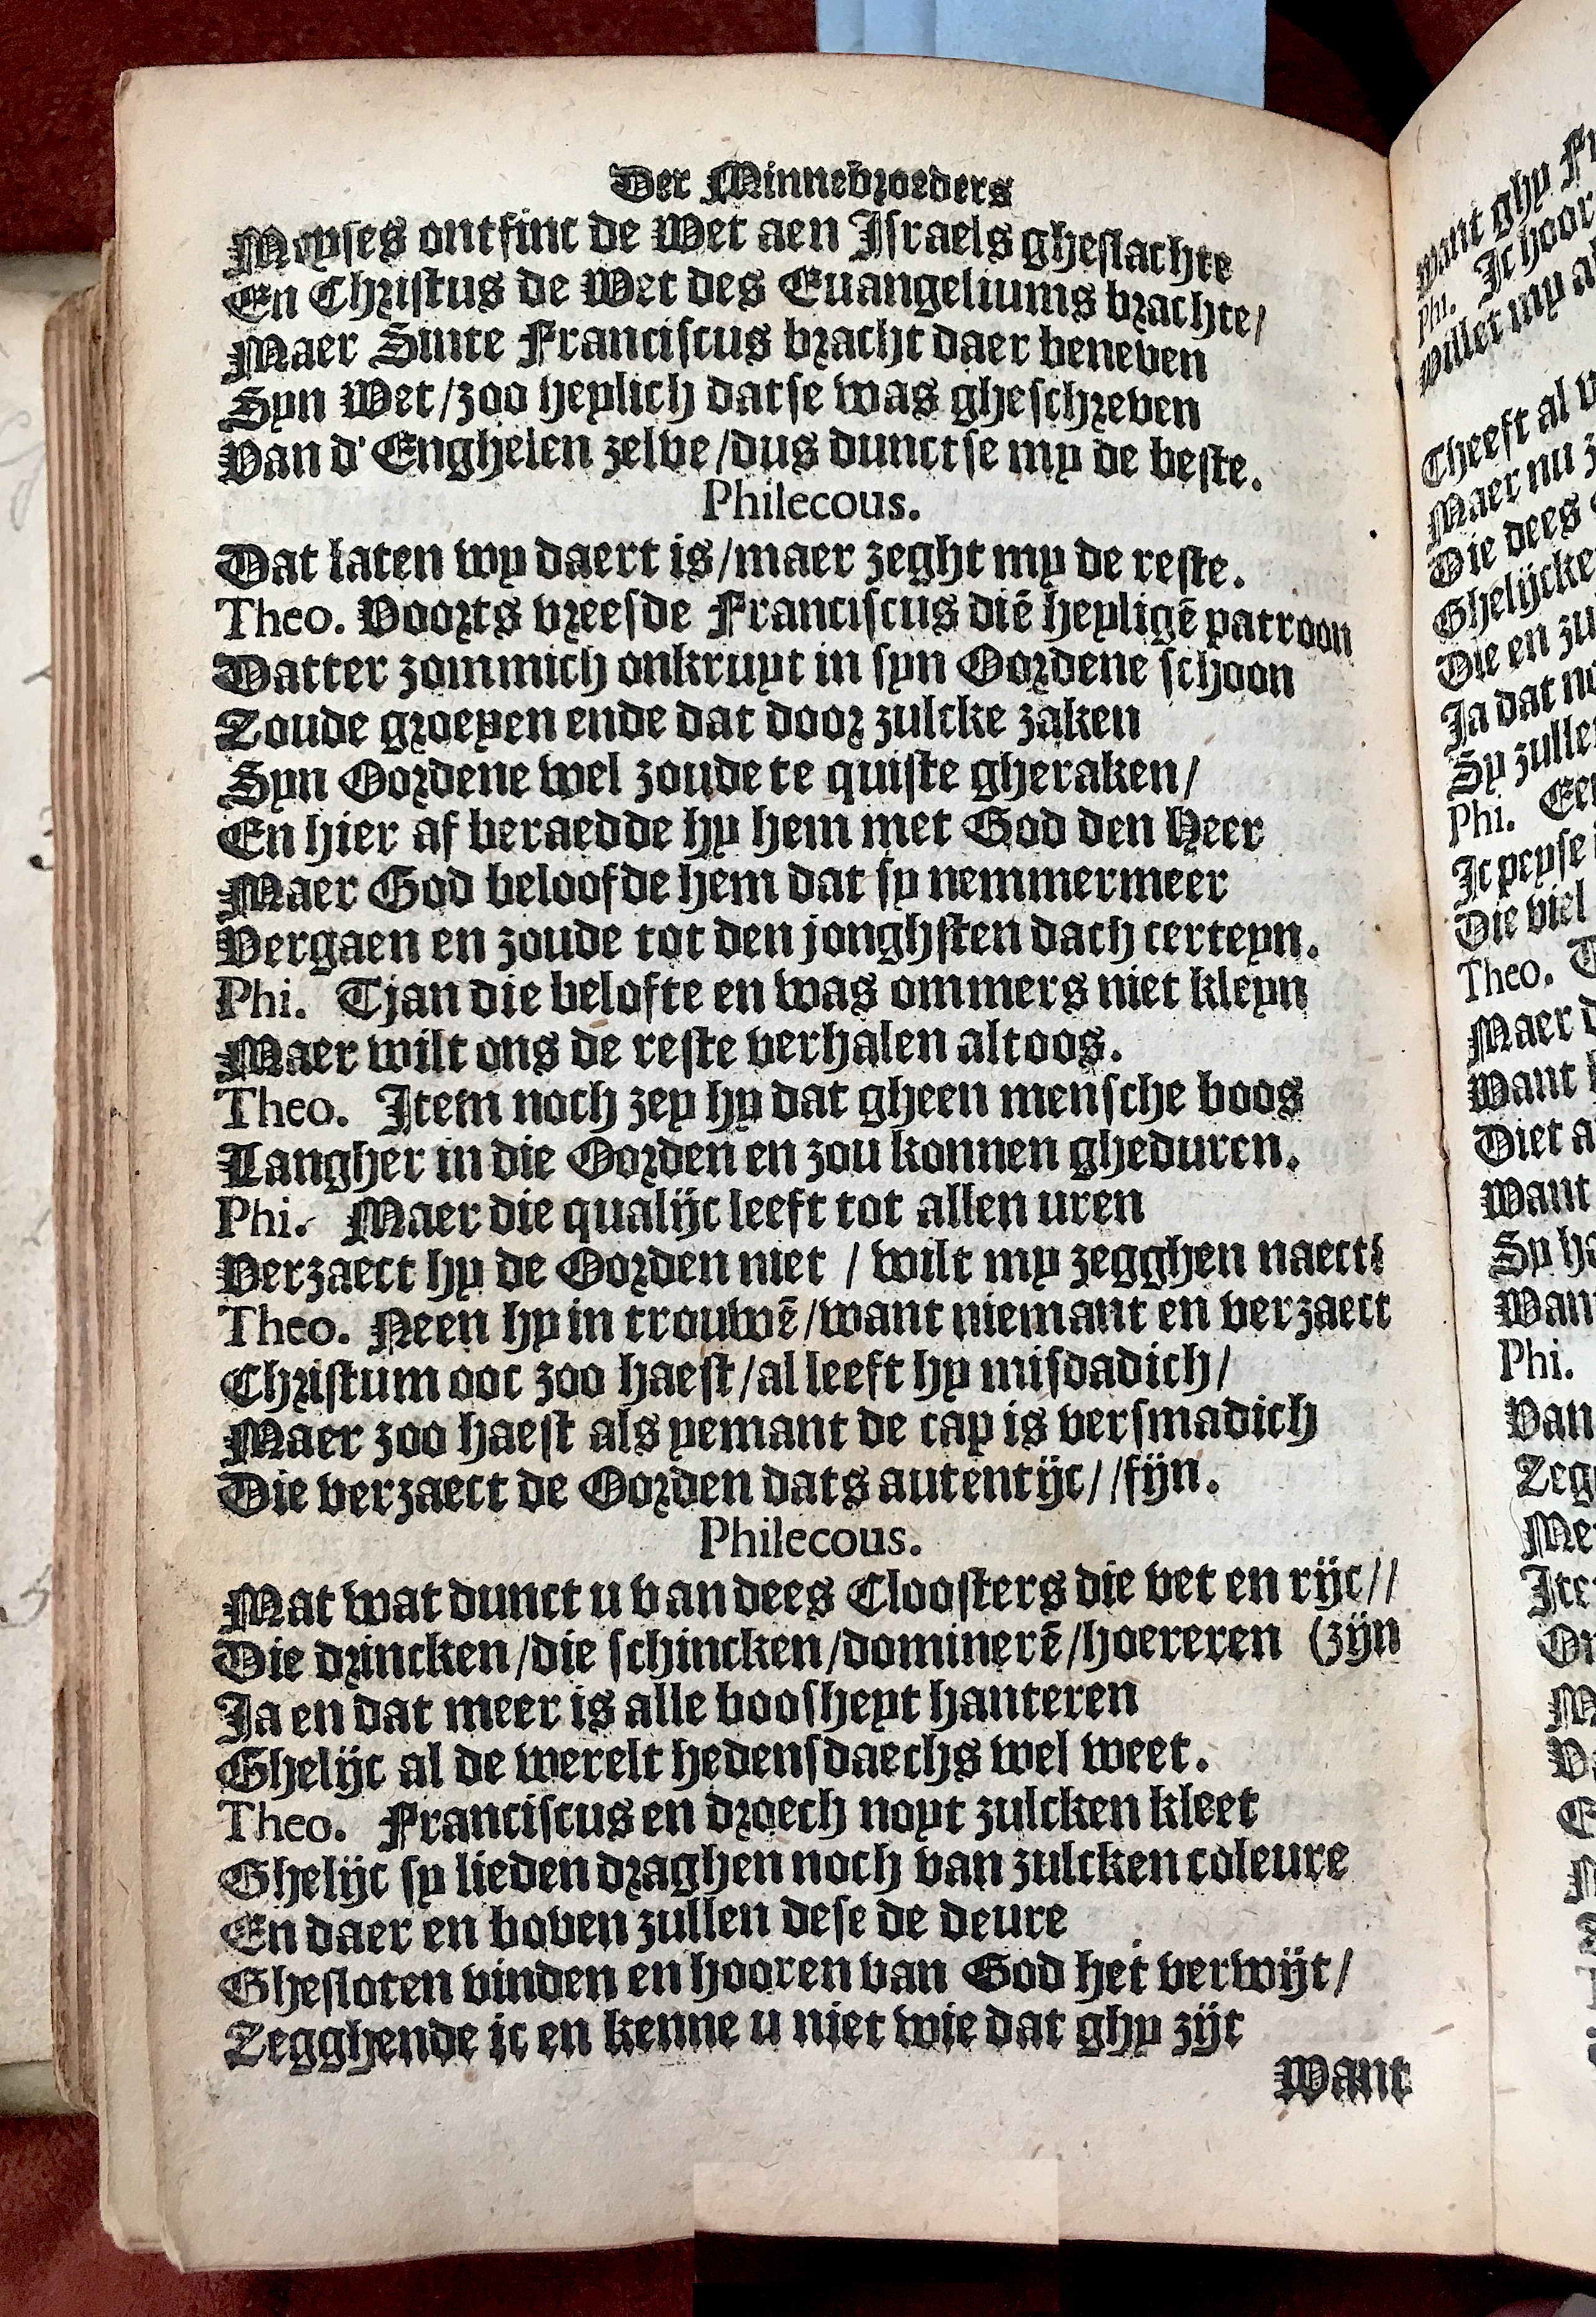 Der Minnebroeders
Moyses ontfinc de Wet aen Israels gheslachte
En Christus de Wet des Euangeliums brachte/
Maer Sinte Franciscus bracht daer beneven
Syn Wet/zoo heylich datse was gheschreven
Van d'Enghelen zelve/dus dunctse my de beste.
Philecous.
Dat laten wy daert is/maer zeght my de reste.
Theo. Voorts vreesde Franciscus diē heyligē patroon
Datter zommich onkruyt in syn Oordene schoon
Zoude groeyen ende dat door zulcke zaken
Syn Oordene wel zoude te quiste gheraken/
En hier af beraedde hy hem met God den Heer
Maer God beloofde hem dat sy nemmermeer
Vergaen en zoude tot den jonghsten dach certeyn.
Phi. Tjan die belofte en was ommers niet kleyn
Maer wilt ons de reste verhalen altoos.
Theo. Item noch zey hy dat gheen mensche boos
Langher in die Oorden en zou konnen gheduren.
Phi. Maer die qualijc leeft tot allen uren
Verzaect hy de Oorden niet / wilt my zegghen naect?
Theo. Neen hy in trouwē/want niemant en verzaect
Christum ooc zoo haest/al leeft hy misdadich/
Maer zoo haest als yemant de cap is versmadich
Die verzaect de Oorden dats autentijc//fijn.
Philecous.
Mat wat dunct u van dees Cloosters die vet en rijc//
Die drincken/die schincken/dominerē/hoereren (zijn
Ja en dat meer is alle boosheyt hanteren
Ghelijc al de werelt hedensdaechs wel weet.
Theo. Franciscus en droech noyt zulcken kleet
Ghelijc sy lieden draghen noch van zulcken coleure
En daer en boven zullen dese de deure
Ghesloten vinden en hooren van God het verwijt/
Zegghende ic en kenne u niet wie dat ghy zijt
Want
want ghy
Phi. Ic hoor
willet my
Cheeft al
Maer nu
Die dees
Ghelijcke
Die en
Ja dat
Sy zulle
Phi.
Ic peyse
Die viel
Theo.
Maer
Want
Diet
Want
Sy
Phi.